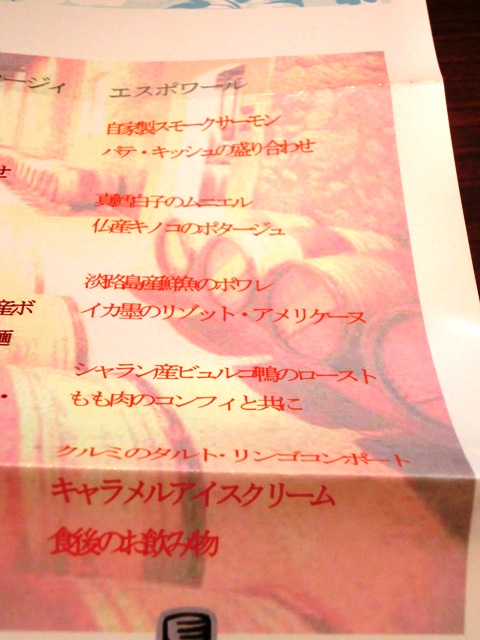 ージィ
エスポワール
自家製スモークサーモン
パテ・キッシュの盛り合わせ
せ
真鱈白子のムニエル
仏産キノコのポタージュ
淡路島産鮮魚のポワレ
産ボ
イカ墨のリゾット・アメリケーヌ
麺
シャラン産ビュルゴ鴨のロースト
もも肉のコンフィと共に
クルミのタルト・リンゴコンポート
キャラメルアイスクリーム
食後のお飲み物